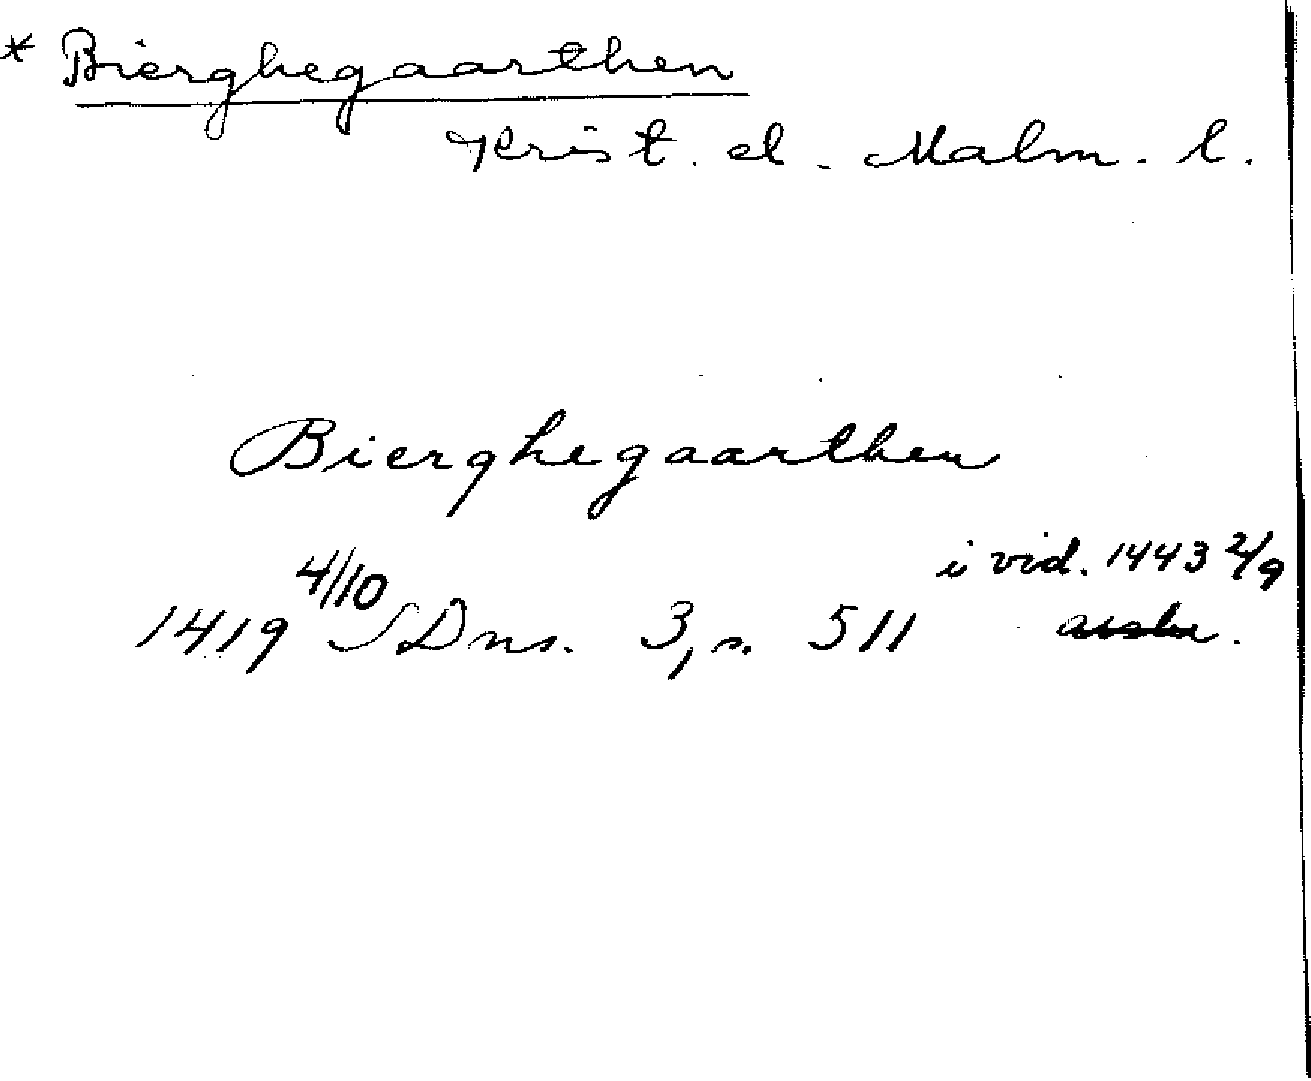 * Bierghegaarthen
Krist. el. Malm. l.
Bierghegaarthen
i vid. 1443 2/9
1419 4/10 SDns. 3, s. 511